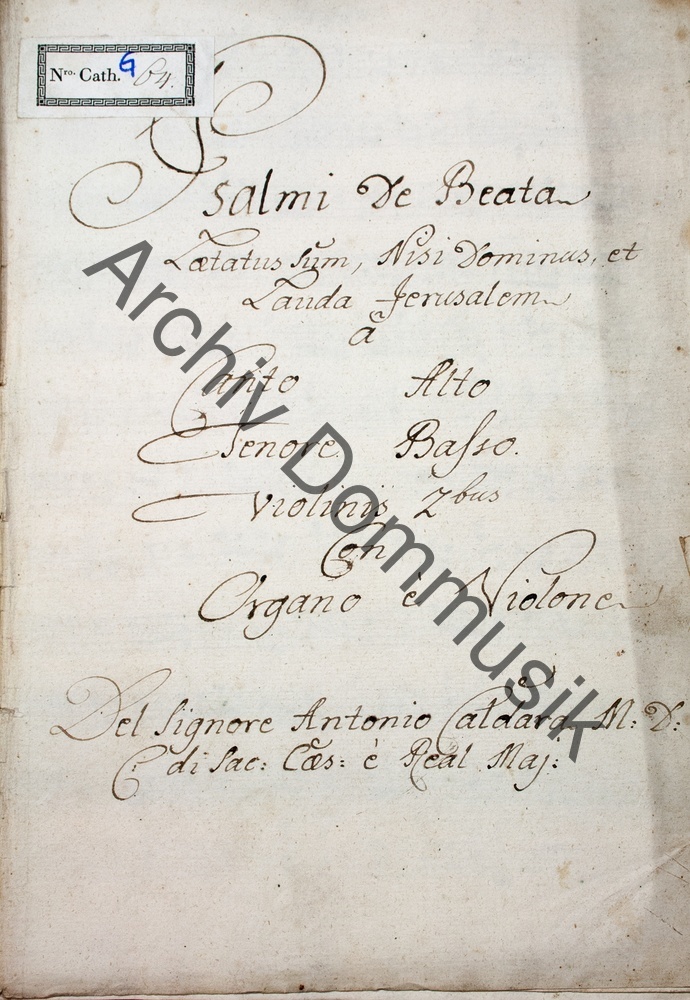 Nro. Cath. G 64.
Psalmi De Beata
Lætatus sum, Nisi Dominus, et
Lauda Jerusalem
à
Canto Alto
Tenore Basso.
Violinis 2bus
Con
Organo è Violone
Del Signore Antonio Caldara M: D:
C: di Sac: Cæs: è Real Maj:
Archiv Dommusik